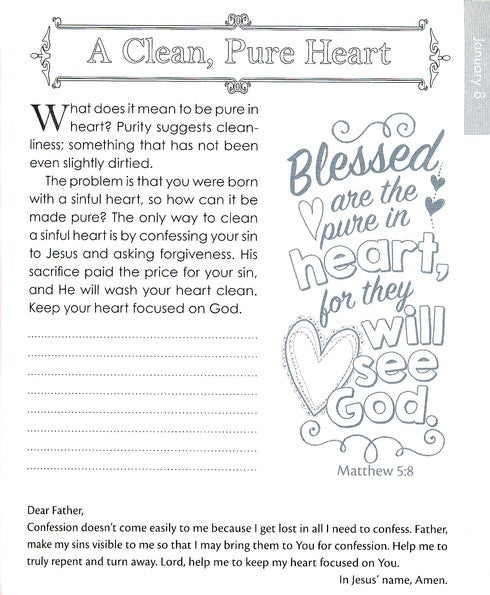 A Clean, Pure Heart
January 8
What does it mean to be pure in
heart? Purity suggests clean-
liness; something that has not been
even slightly dirtied.
The problem is that you were born
with a sinful heart, so how can it be
made pure? The only way to clean
a sinful heart is by confessing your sin
to Jesus and asking forgiveness. His
sacrifice paid the price for your sin,
and He will wash your heart clean.
Keep your heart focused on God.
Blessed
are the
pure in
heart,
for they
will
see
God.
Matthew 5:8
Dear Father,
Confession doesn't come easily to me because I get lost in all I need to confess. Father,
make my sins visible to me so that I may bring them to You for confession. Help me to
truly repent and turn away. Lord, help me to keep my heart focused on You.
In Jesus' name, Amen.